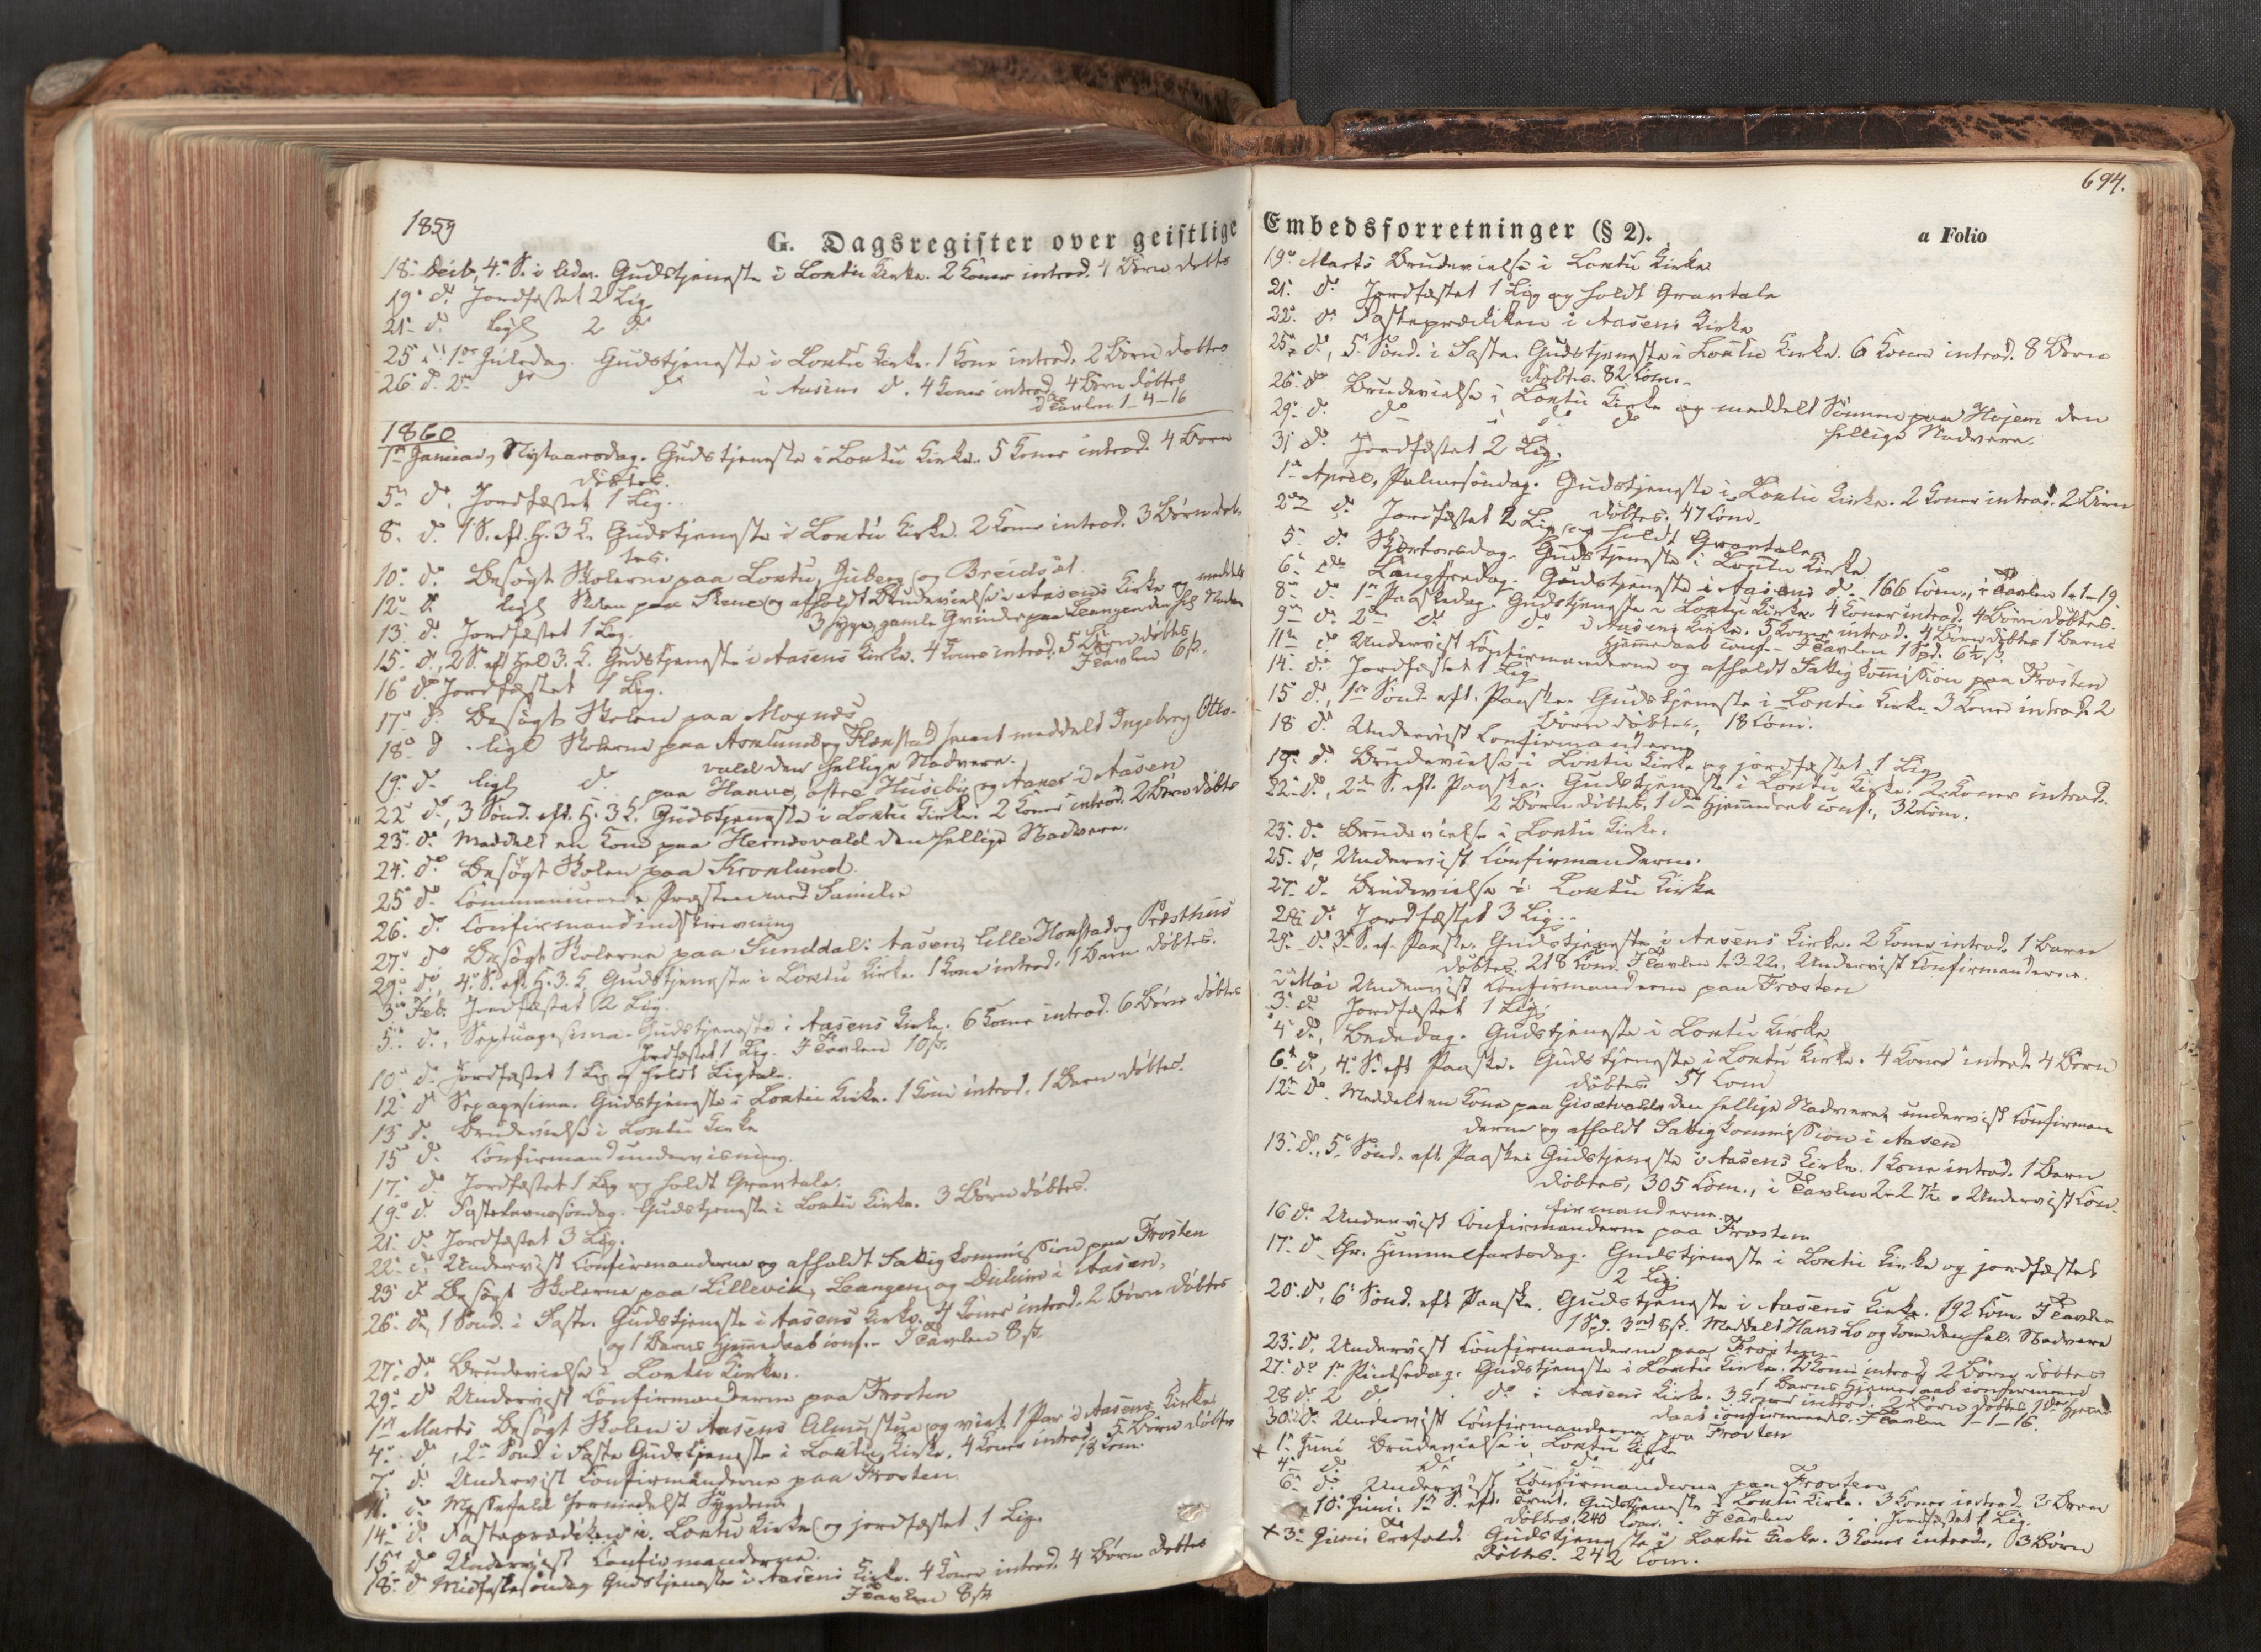 1859
G. Dagsregister over geistlige
18de Decb, 4de S. i Adv. Gudstjeneste i Lexvii Kirke. 2 Koner introd. 4 Børn døbtes
19de do Jordfæstet 2 Lig
21de do ligl 2 do
25 do 1ste Juledag. Gudstjeneste i Kirke. 1 Kone introd. 2 Børn døbtes
26 do 2den do do i Aasens do. 4 Koner introd. 4 Børn døbtes
I Tavlen 1-4-16
1860
1ste Januar, Nytaarsdag. Gudstjeneste i Kirke. 5 Koner introd. 4 Børn
døbtes.
5te do, Jordfæstet 1 Lig.
8de do. 1 S. eft. H. 3 K. Gudstjeneste i Kirke. 2 Koner introd. 3 Børn døb-
tes.
10de do. Besøgt Skolerne paa og
12te do ligl Skolen paa og afholdt Brudevielse i Aasens Kirke og meddelt
3 syge, gamle paa den hel. Nadver
13 do. Jordfæstet 1 Lig.
15de do, 2 S. eft Hel 3. K. Gudstjeneste i Aasens Kirke. 4 Koner introd. 5 Børn døbtes
I Tavlen 6 ß.
16de do. Jordfæstet 1 Lig.
17de do. Besøgt Skolen paa Mognes
18de do ligl Skolerne paa og samt meddelt Ingeborg Otto-
vald den hellige Nadvere.
19de do ligl do paa østre Husebÿ og i Aasen
22 do, 3 Sønd. eft. H. 3 K. Gudstjeneste i Kirke. 2 Koner introd. 2 Børn døbtes
23de do. Meddelt en Kone paa den hellige Nadvere.
24de do. Besøgt Skolen paa
25 do. Communicerede Præsten med Familie
26. do. Confirmandindskrivning
27de do Besøgt Skolerne paa Sunddal i Aasen, lille og Præsthus
29de do, 4de S. eft. H. 3. K. Gudstjeneste i Kirke. 1 Kone introd. 1 Barn døbtes.
3die Feb. Jordfæstet 2 Lig.
5te do, Septuagesima. Gudstjeneste i Aasens Kirke. 6 Koner introd. 6 Børn døbtes
Jordfæstet 1 Lig. I Tavlen 10 ß.
10de do. Jordfæstet 1 Lig og holdt Ligtale.
12te do Sexagesima. Gudstjeneste i Kirke. 1 Kone introd. 1 Barn døbtes.
13 do. Brudevielse i Kirke
15 do. Confirmandundervisning.
17. do. Jordfæstet 1 Lig og holdt Gravtale.
19de do. Fastelavnssøndag. Gudstjeneste i Kirke. 3 Børn døbtes.
21. do. Jordfæstet 3 Lig.
22. do. Undervist Confirmanderne og afholdt Fattigkommission paa Frosten
23 do Besøgt Skolerne paa Lillevik, og i Aasen,
26. do, 1 Sønd. i Faste. Gudstjeneste i Aasens Kirke. 4 Koner introd. 2 Børn døbtes
og 1 Barns Hjemmedaab conf. I Tavlen 8 ß.
27. do Brudevielse i Kirke.
29de do Undervist Confirmanderne paa Frosten
1ste Marts Besøgt Skolen i Aasens Almestue og viet 1 Par i Aasens Kirke
4de do, 2den Sønd. i Faste Gudstjeneste i Kirke. 4 Koner introd. 5 Børn døbtes
18 Com.
7. do Undervist Confirmanderne paa Frosten.
11. do Messefald formedelst Sygdom
14de do Fasteprædiken i Kirke og jordfæstet 1 Lig.
15de do Undervist Confirmanderne.
18de do Midfastesøndag Gudstjeneste i Aasens Kirke. 4 Koner introd. 4 Børn døbtes
I Tavlen 8 ß
694.
Embedsforretninger (§ 2). a Folio
19de Marts Brudevielse i Kirke
21. do Jordfæstet 1 Lig og holdt Gravtale
22. do Fasteprædiken i Aasens Kirke
25de do, 5te Sønd. i Faste. Gudstjeneste i Kirke. 6 Koner introd. 8 Børn
døbtes. 82 Com.
26. do Brudevielse i Kirke og meddelt paa den
hellige Nadvere.
29de do. do i do do
31 do. Jordfæstet 2 Lig.
1ste April, Palmesøndag. Gudstjeneste i Kirke. 2 Koner introd. 2 Børn
døbtes. 47 Com.
2den do. Jordfæstet 2 Lig og holdt Gravtale
5. do Skjærtorsdag. Gudstjeneste i Kirke
6te do Langfredag. Gudstjeneste i Aasens do. 166 Com., i Tavlen 1-1-19.
8de do 1ste Paaskedag. Gudstjeneste i Kirke. 4 Koner introd. 4 Børn døbtes.
9de do 2den do do i Aasens Kirke. 5 Koner introd. 4 Børn døbtes 1 Barns
Hjemmedaab conf. I Tavlen 1 Spd. 6½ ß.
11te do Undervist Confirmanderne og afholdt Fattigkommission paa Frosten
14. do Jordfæstet 1 Lig
15 do, 1ste Sønd. eft. Paaske. Gudstjeneste i Kirke. 3 Koner introd. 2
Børn døbtes, 18 Com.
18 do Undervist Confirmanderne
19de do. Brudevielse i Kirke og jordfæstet 1 Lig
22. do, 2den S. eft. Paaske. Gudstjeneste i Kirke. 2 Koner introd.
2 Børn døbtes, 1 do Hjemmedaab conf., 32 Com.
23. do Brudevielse i Kirke.
25. do, Undervist Confirmanderne.
27. do Brudevielse i Kirke
28 do Jordfæstet 3 Lig.
29de do. 3die S. ef. Paaske. Gudstjeneste i Aasens Kirke. 2 Koner introd. 1 Barn
døbtes. 218 Com. I Tavlen 1-3-22. Undervist Confirmanderne.
Mai Undervist Confirmanderne paa Frosten
3. do Jordfæstet 1 Lig.
4 do, Bededag. Gudstjeneste i Kirke
6te do, 4de S. eft Paaske. Gudstjeneste i Kirke. 4 Koner introd. 4 Børn
døbtes. 57 Com
12te do. Meddelt en Kone paa den hellige Nadvere, undervist Confirman
derne og afholdt Fattigkommission i Aasen
13. do, 5te Sønd. eft Paaske Gudstjeneste i Aasens Kirke. 1 Kone introd. 1 Barn
døbtes, 305 Com., i Tavlen Undervist Con-
firmanderne.
16 do Undervist Confirmanderne paa Frosten
17. do Chr. Himmelfartsdag. Gudstjeneste i Kirke og jordfæstet
2 Lig.
20. do, 6te Sønd. eft Paaske. Gudstjeneste i Aasens Kirke. 192 Com. I Tavlen
1 Spd. 3 ort 8 ß. Meddelt Hans Lo og Kone den hel. Nadvere
23. do, Undervist Confirmanderne paa Frosten
27. do 1ste Pintsedag. Gudstjeneste i Kirke. 2 Koner introd. 2 Børn døbtes
1 Barns Hjemmedaab confirmered
28 do 2 do do i Aasens Kirke. 3 Koner introd. 2 Børn døbtes, 1 do Hjemme-
daab confirmerede. I Tavlen 1-1-16.
30. do Undervist Confirmanderne paa Frosten
1ste Juni Brudevielse i Kirke
+ 4de do do i do do
6te do Undervist Confirmanderne paa Frosten
+ 10de Juni. 1ste S. eft. Trinit. Gudstjeneste i Kirke. 3 Koner introd. 3 Børn
døbtes, 240 Com. I Tavlen Jordfæstet 1 Lig.
+ 3die Juni, Trefold. Gudstjeneste i Kirke. 3 Koner introd. 3 Børn
døbtes. 242 Com.